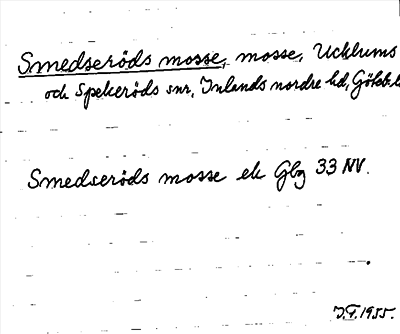 Smedseröds mosse, mosse, Ucklums
och Spekeröds snr, Inlands nordre hd, Göteb. l
Smedseröds mosse ek Gbg 33 NV.
J.F. 1955.